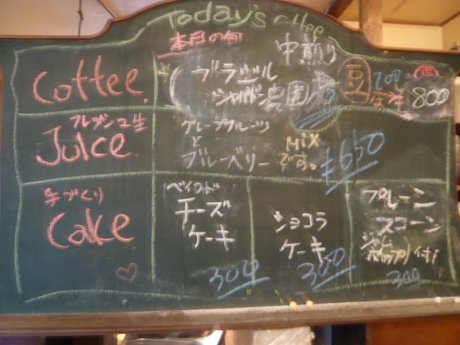 Today's coffee
Coffee
本日の
中煎り
ブラジル
豆
100g
800
フレッシュ生
Juice
グレープフルーツ
と
ブルーベリー
Mix
です。
¥650
手づくり
Cake
ベイクド
チーズ
ケーキ
300
ショコラ
ケーキ
350
プレーン
スコーン
ジャム
付!
300